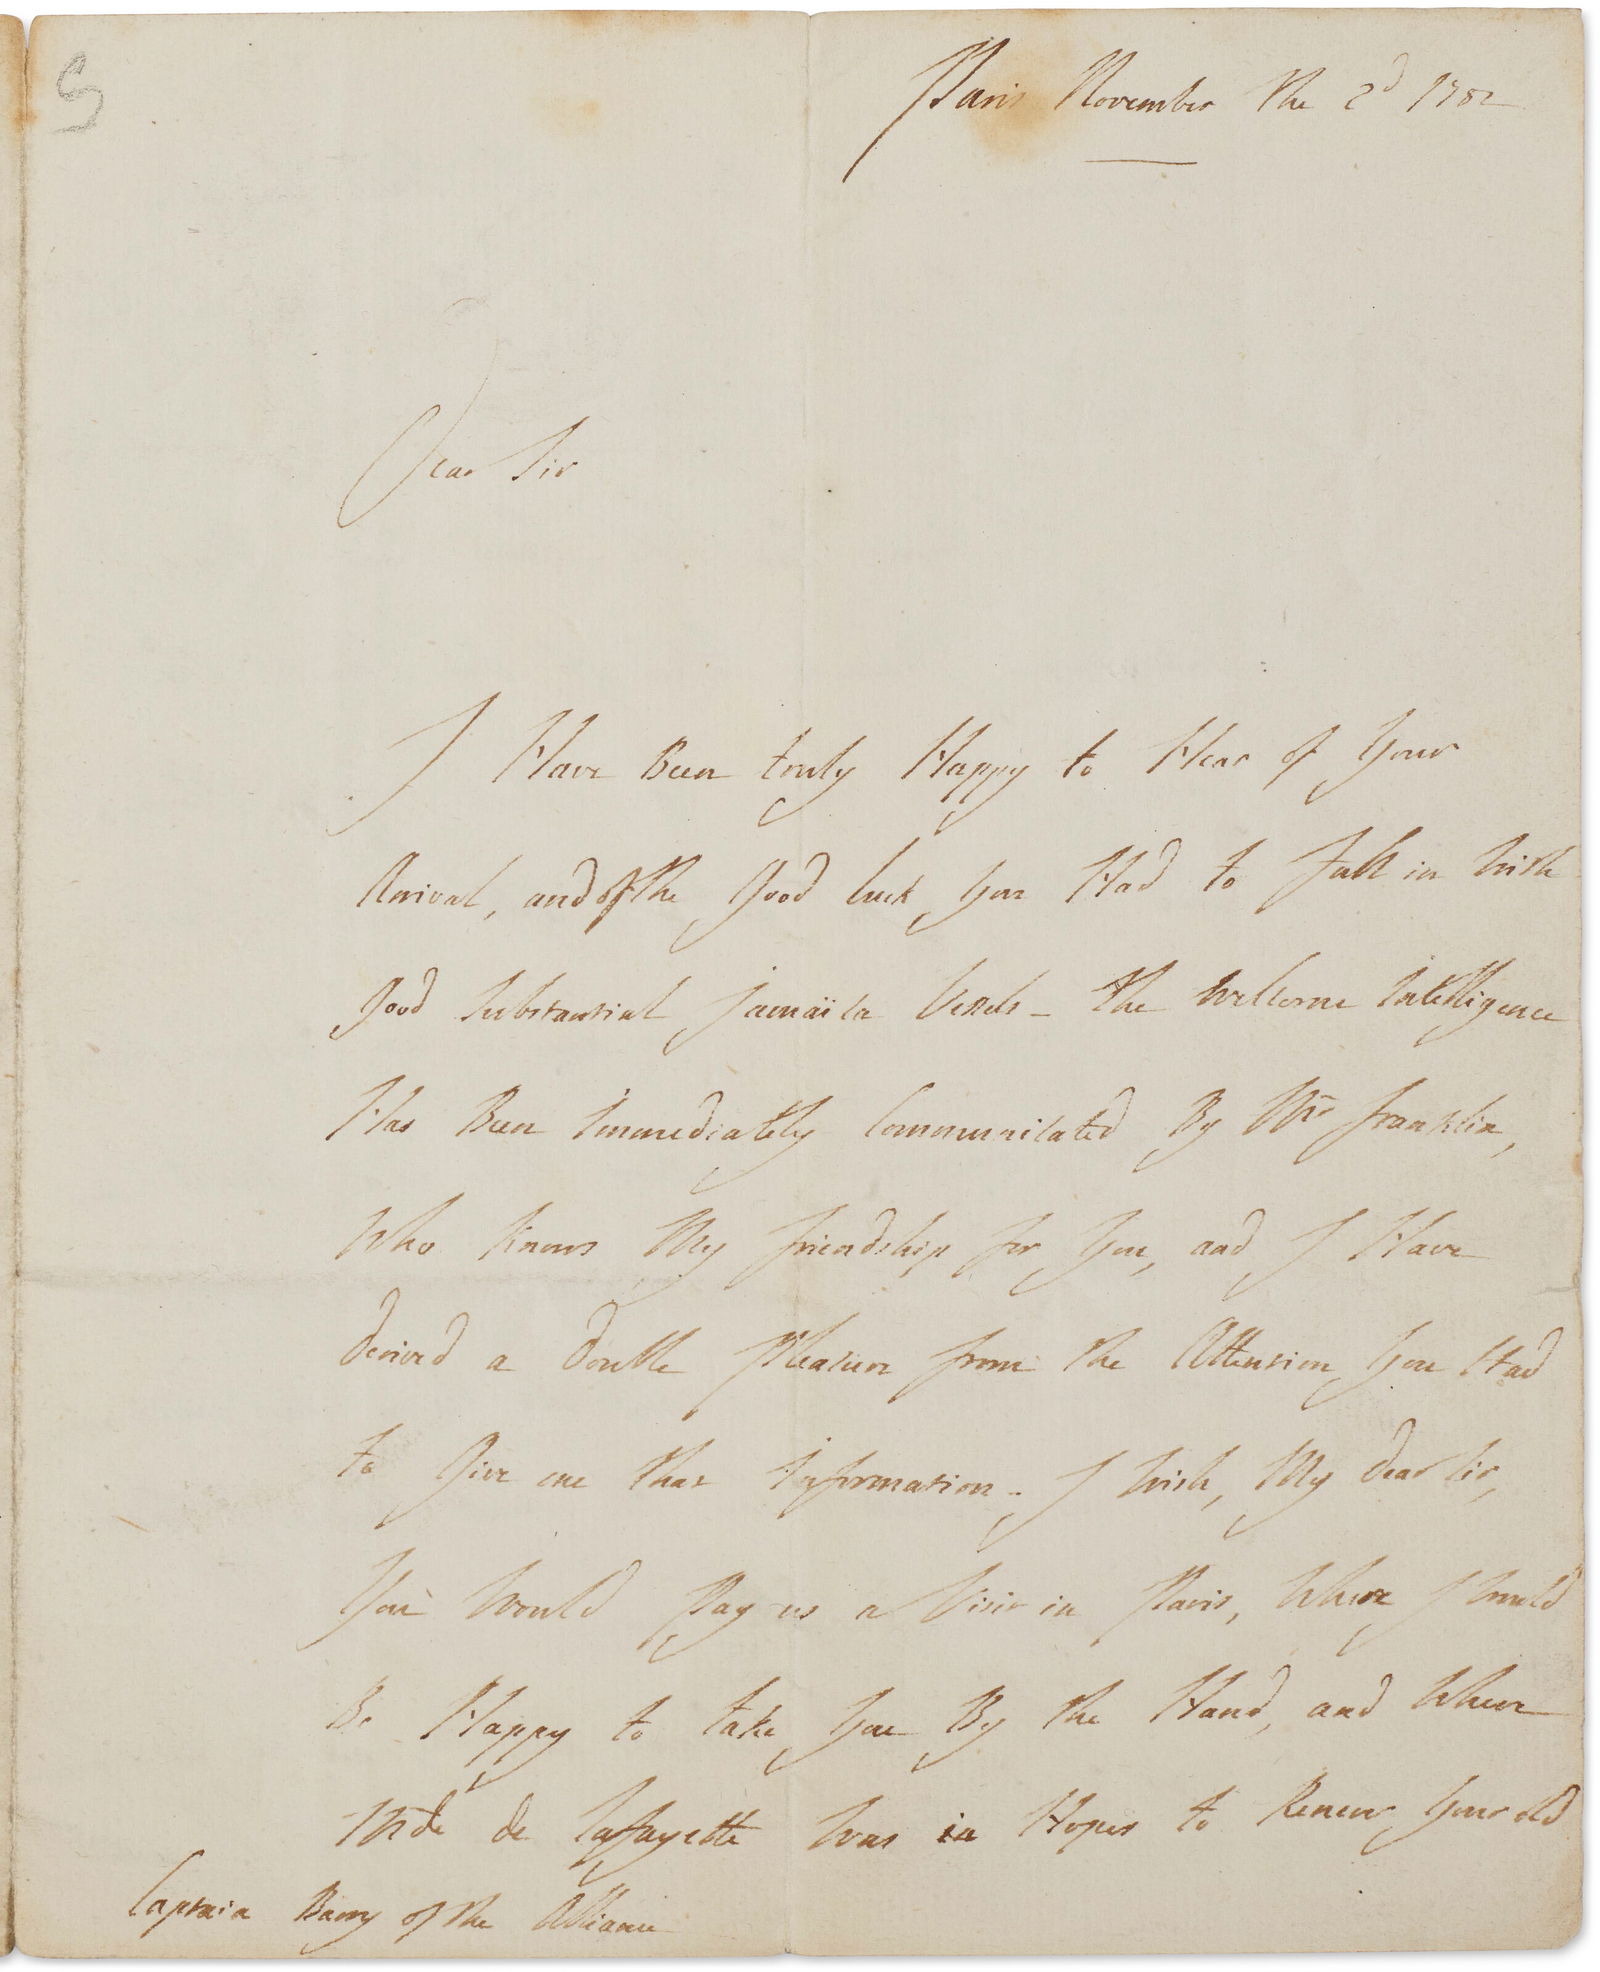 5
Paris November the 2d 1782
Dear Sir
I Have Been truly Happy to Hear of Your
Arrival, and of the Good luck You Had to Fall in With
Good Substantial Jamaïca Vessels - the Welcome Intelligence
Has Been Immediately Communicated By Mr franklin,
Who knows My friendship for You, and I Have
derived a double Pleasure from the Attention You Had
to Give me that Information - I Wish, My dear Sir,
You Would Pay us a Visit in Paris, Where I Would
Be Happy to take You By the Hand, and Where
Mde de Lafayette Was in Hopes to Renew Your old
Captain Barry of the Alliance